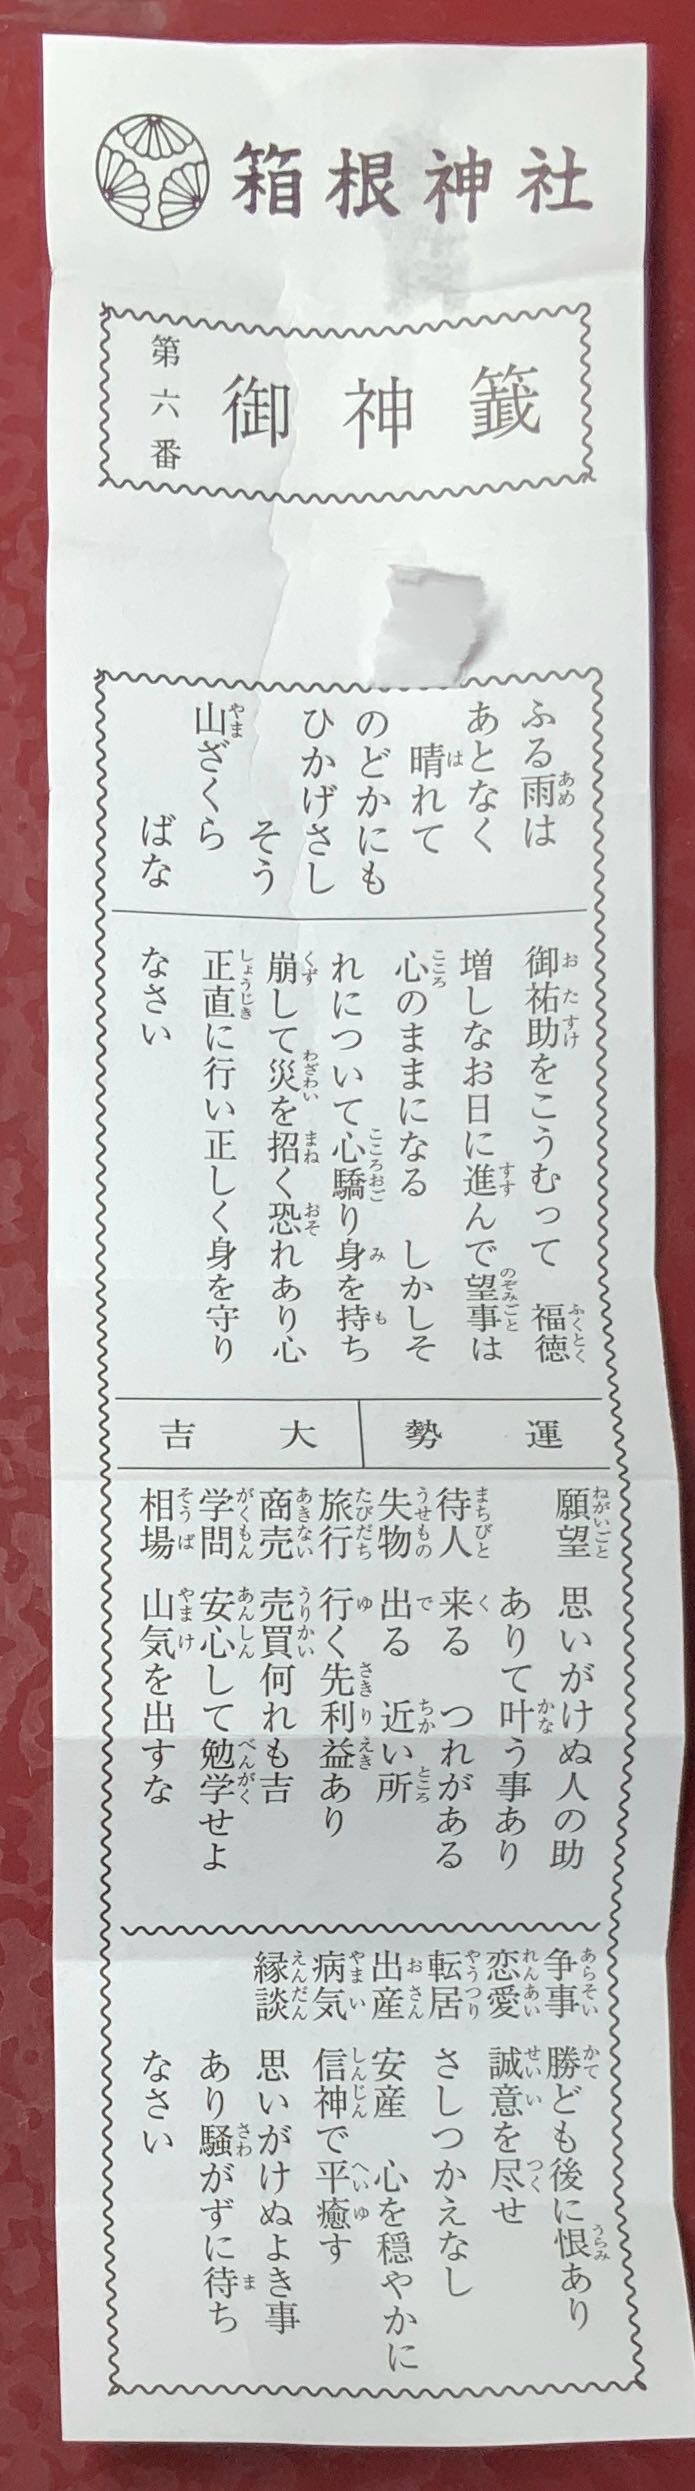 箱根神社
御神籤
第六番
ふる雨は
あとなく
晴れて
のどかにも
ひかげさし
そう
山ざくら
ばな
御祐助をこうむって　福徳
増しなお日に進んで望事は
心のままになる　しかしそ
れについて心驕り身を持ち
崩して災を招く恐れあり心
正直に行い正しく身を守り
なさい
運勢　大吉
願望　思いがけぬ人の助
ありて叶う事あり
待人　来る　つれがある
失物　出る　近い所
旅行　行く先利益あり
商売　売買何れも吉
学問　安心して勉学せよ
相場　山気を出すな
争事　勝ども後に恨あり
恋愛　誠意を尽せ
転居　さしつかえなし
出産　安産　心を穏やかに
病気　信神で平癒す
縁談　思いがけぬよき事
あり騒がずに待ち
なさい